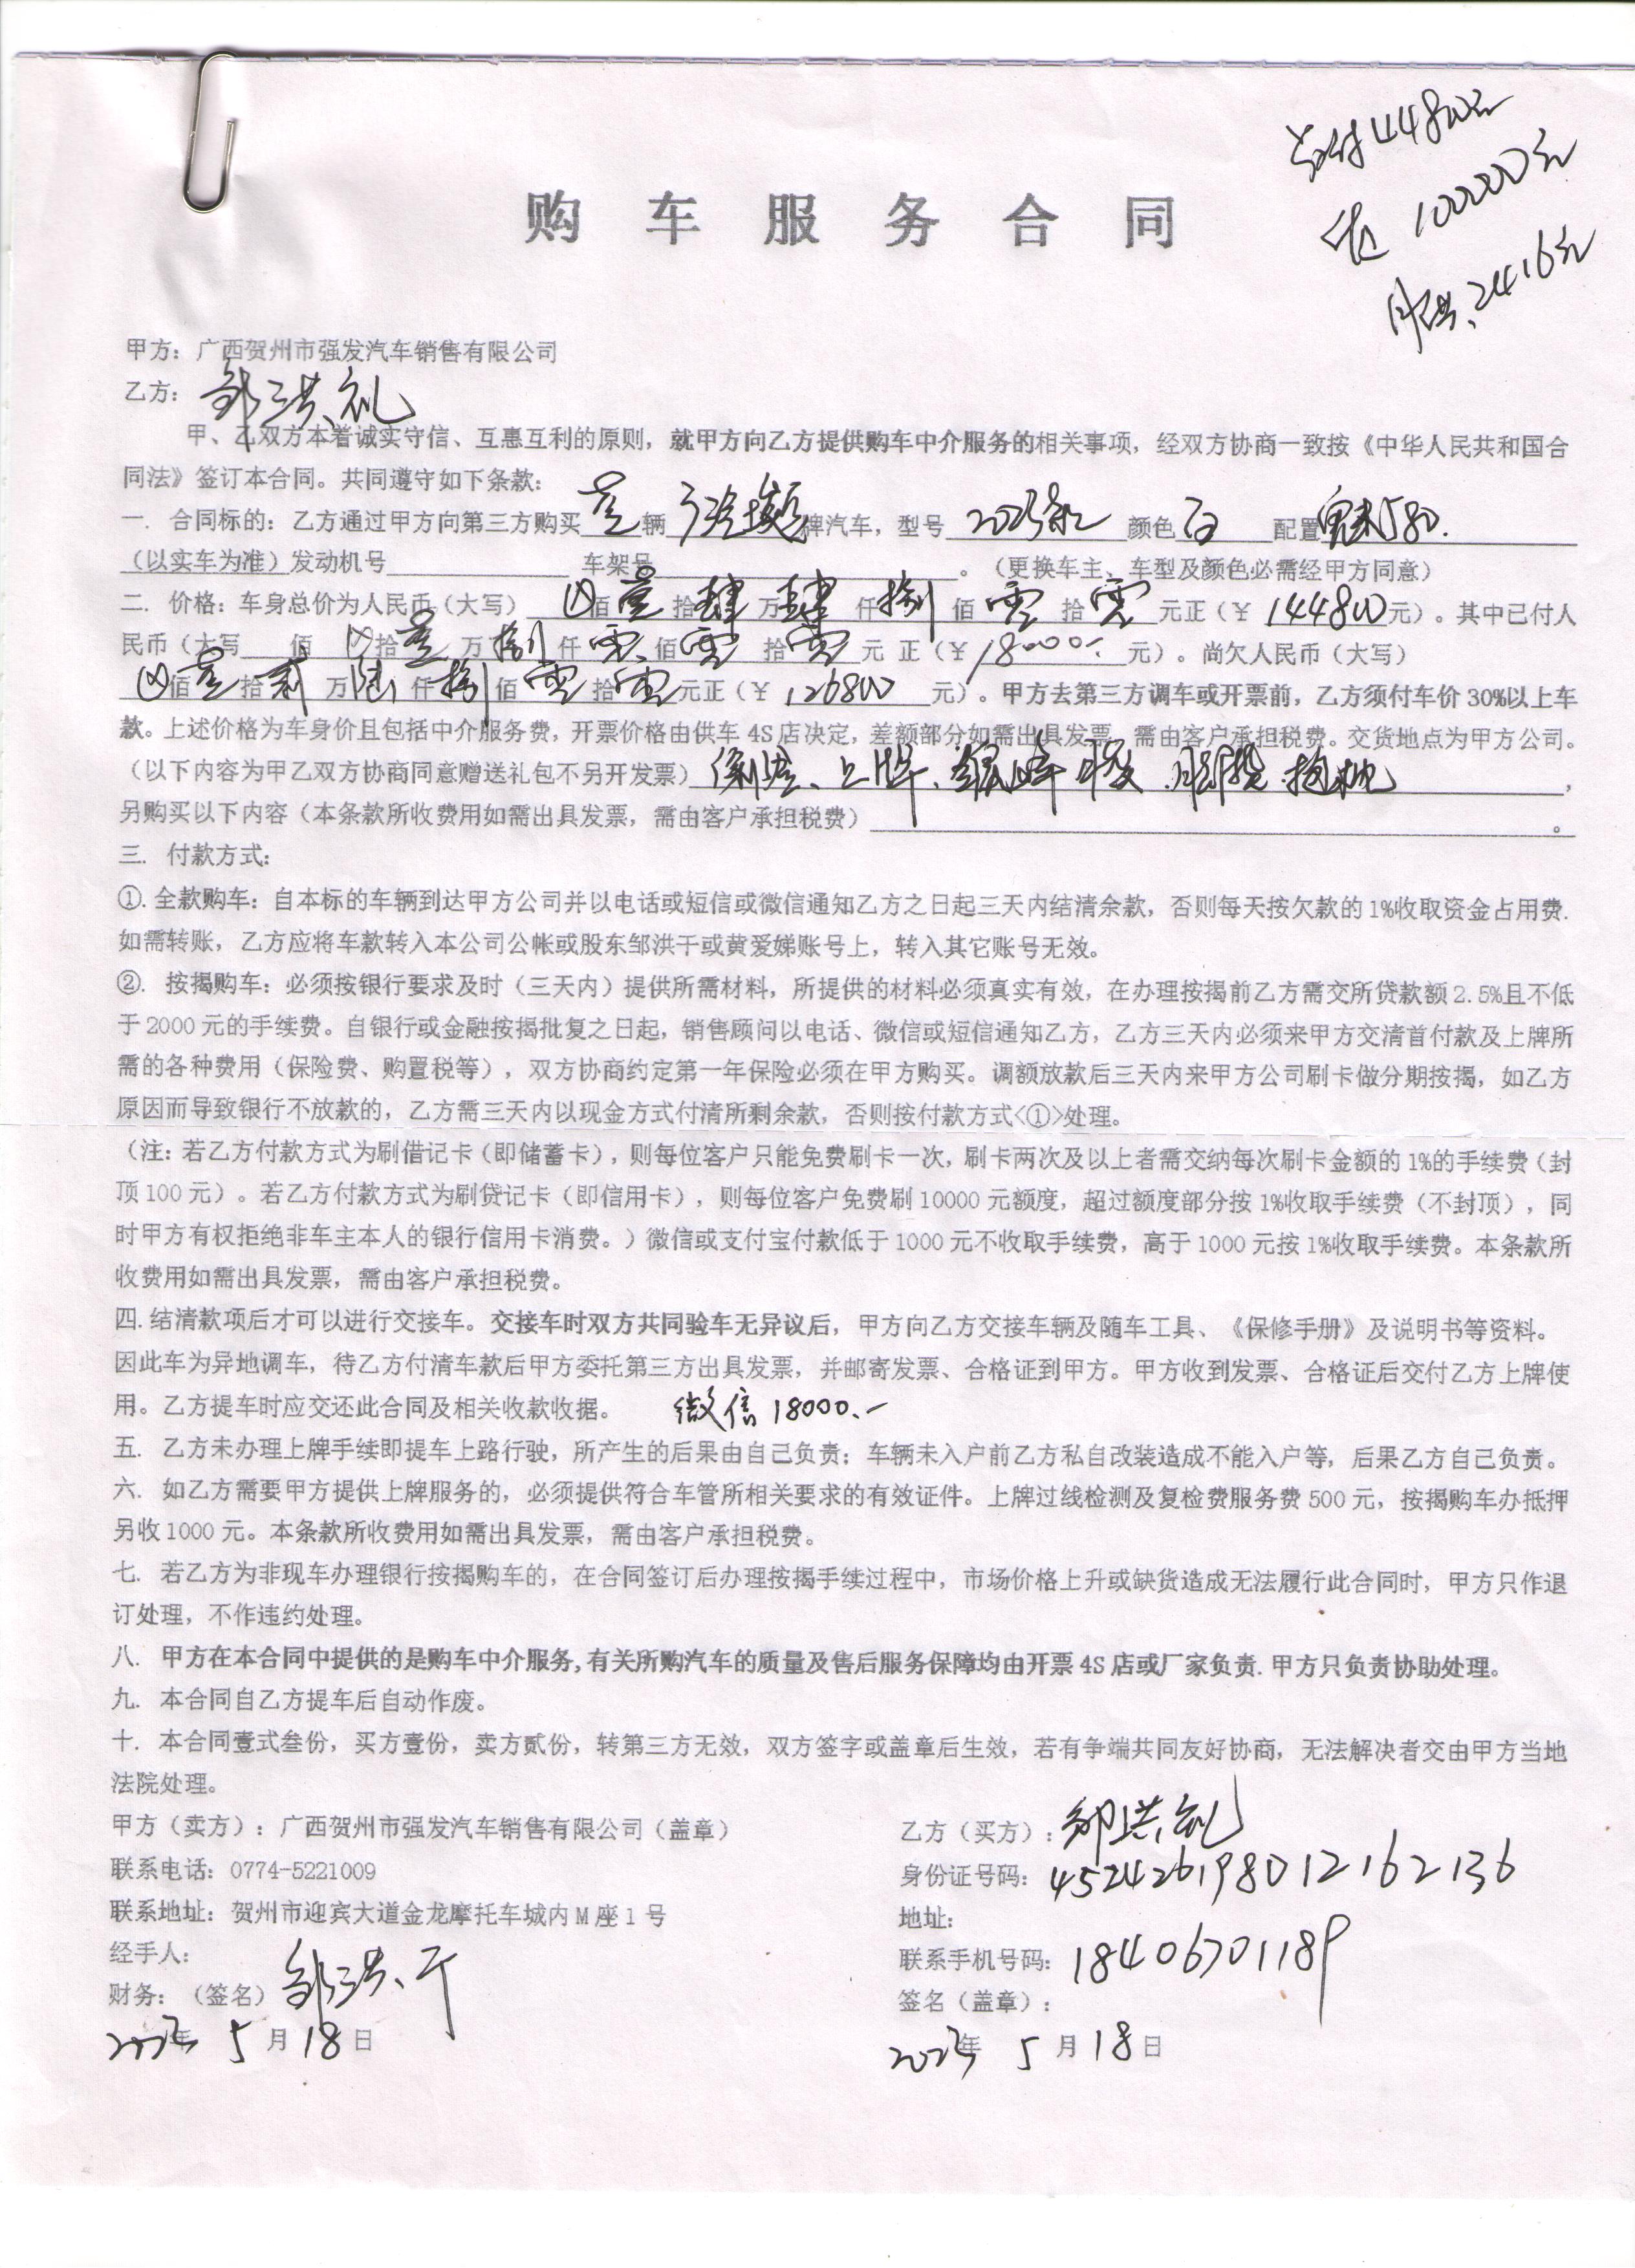 首付44800元
贷100000元
月供:2416元
购车服务合同
甲方：广西贺州市强发汽车销售有限公司
乙方：邹洪礼
甲、乙双方本着诚实守信、互惠互利的原则，就甲方向乙方提供购车中介服务的相关事项，经双方协商一致按《中华人民共和国合
同法》签订本合同。共同遵守如下条款：
一. 合同标的：乙方通过甲方向第三方购买 壹 辆 广汽 牌汽车，型号 颜色 白 配置 580.
（以实车为准）发动机号 车架号 。（更换车主、车型及颜色必需经甲方同意）
二. 价格：车身总价为人民币（大写） 佰 壹 拾 肆 万 肆 仟 捌 佰 零 拾 零 元正（¥ 144800元）。其中已付人
民币（大写 佰 拾 壹 万 捌 仟 零 佰 零 拾 零 元 正（¥ 18000.- 元）。尚欠人民币（大写）
佰 壹 拾 贰 万 陆 仟 捌 佰 零 拾 零 元正（¥ 126800 元）。甲方去第三方调车或开票前，乙方须付车价 30%以上车
款。上述价格为车身价且包括中介服务费，开票价格由供车 4S 店决定，差额部分如需出具发票，需由客户承担税费。交货地点为甲方公司。
（以下内容为甲乙双方协商同意赠送礼包不另开发票） 、上牌、 ，
另购买以下内容（本条款所收费用如需出具发票，需由客户承担税费） 。
三. 付款方式：
①. 全款购车：自本标的车辆到达甲方公司并以电话或短信或微信通知乙方之日起三天内结清余款，否则每天按欠款的 1%收取资金占用费.
如需转账，乙方应将车款转入本公司公帐或股东邹洪干或黄爱娣账号上，转入其它账号无效。
②. 按揭购车：必须按银行要求及时（三天内）提供所需材料，所提供的材料必须真实有效，在办理按揭前乙方需交所贷款额 2.5%且不低
于 2000 元的手续费。自银行或金融按揭批复之日起，销售顾问以电话、微信或短信通知乙方，乙方三天内必须来甲方交清首付款及上牌所
需的各种费用（保险费、购置税等），双方协商约定第一年保险必须在甲方购买。调额放款后三天内来甲方公司刷卡做分期按揭，如乙方
原因而导致银行不放款的，乙方需三天内以现金方式付清所剩余款，否则按付款方式<①>处理。
（注：若乙方付款方式为刷借记卡（即储蓄卡），则每位客户只能免费刷卡一次，刷卡两次及以上者需交纳每次刷卡金额的 1%的手续费（封
顶 100 元）。若乙方付款方式为刷贷记卡（即信用卡），则每位客户免费刷 10000 元额度，超过额度部分按 1%收取手续费（不封顶），同
时甲方有权拒绝非车主本人的银行信用卡消费。）微信或支付宝付款低于 1000 元不收取手续费，高于 1000 元按 1%收取手续费。本条款所
收费用如需出具发票，需由客户承担税费。
四. 结清款项后才可以进行交接车。交接车时双方共同验车无异议后，甲方向乙方交接车辆及随车工具、《保修手册》及说明书等资料。
因此车为异地调车，待乙方付清车款后甲方委托第三方出具发票，并邮寄发票、合格证到甲方。甲方收到发票、合格证后交付乙方上牌使
用。乙方提车时应交还此合同及相关收款收据。 微信 18000.-
五. 乙方未办理上牌手续即提车上路行驶，所产生的后果由自己负责；车辆未入户前乙方私自改装造成不能入户等，后果乙方自己负责。
六. 如乙方需要甲方提供上牌服务的，必须提供符合车管所相关要求的有效证件。上牌过线检测及复检费服务费 500 元，按揭购车办抵押
另收 1000 元。本条款所收费用如需出具发票，需由客户承担税费。
七. 若乙方为非现车办理银行按揭购车的，在合同签订后办理按揭手续过程中，市场价格上升或缺货造成无法履行此合同时，甲方只作退
订处理，不作违约处理。
八. 甲方在本合同中提供的是购车中介服务,有关所购汽车的质量及售后服务保障均由开票 4S 店或厂家负责. 甲方只负责协助处理。
九. 本合同自乙方提车后自动作废。
十. 本合同壹式叁份，买方壹份，卖方贰份，转第三方无效，双方签字或盖章后生效，若有争端共同友好协商，无法解决者交由甲方当地
法院处理。
甲方（卖方）：广西贺州市强发汽车销售有限公司（盖章）
联系电话：0774-5221009
联系地址：贺州市迎宾大道金龙摩托车城内 M 座 1 号
经手人：
财务：（签名）邹洪干
年 5 月 18 日
乙方（买方）：邹洪礼
身份证号码：452426198012162136
地址：
联系手机号码：18406701189
签名（盖章）：
年 5 月 18 日